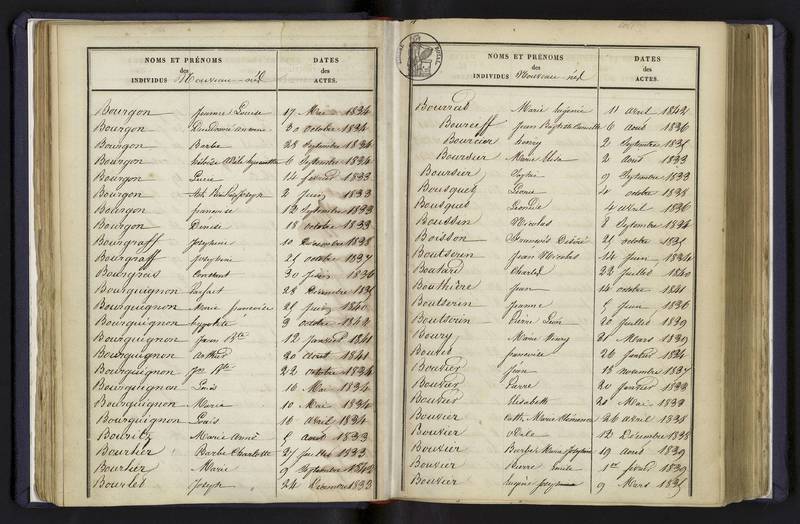 NOMS ET PRÉNOMS
des
INDIVIDUS Nouveau-nés
DATES
des
ACTES.
Bourgon Jeanne Louise 17 Mai 1834
Bourgon 30 octobre 1834
Bourgon Barbe 28 Septembre 1834
Bourgon 6 Septembre 1834
Bourgon Lucie 14 1833
Bourgon Joseph 2 Juin 1833
Bourgon francoise 12 Septembre 1833
Bourgon Denise 18 octobre 1833
Bourgraff Josephine 10 Decembre 1838
Bourgraff 21 octobre 1837
Bourgnus Constant 30 Juin 1836
Bourguignon Parfait 28 Decembre
Bourguignon Marie francoise 1840
Bourguignon hyppolite 3 octobre 1842
Bourguignon Jean Bte 12 Janvier 1841
Bourguignon Arthur 20 Aout 1841
Bourguignon Jn Bte 22 octobre 1834
Bourguignon Louis 16 Mai 1834
Bourguignon Maria 10 Mai 1834
Bourguignon Louis 16 Avril 1834
Bouritz Marie Anne Aout 1833
Bourlier Barbe Charlotte Juillet 1833
Bourlier Marie 9 Septembre 1842
Bourlet Joseph 24 Decembre 1833
NOMS ET PRÉNOMS
des
INDIVIDUS Nouveau-nés
DATES
des
ACTES.
Marie Eugénie 11 Avril 1842
Jean Baptiste 6 Aout 1836
Boursier henry 2 Septembre
Boursier Marie Elisa 2 Aout 1833
Boursier Sophie 9 Septembre 1833
Bousquet Leonie 4 octobre 1838
Bousquet Leonide 4 Avril 1836
Boussen Nicolas 8 Septembre 1834
Boisson Francois Désiré 21 octobre
Boutserin Jean Nicolas 14 Juin 1834
Boutard Charles 22 Juillet 1840
Bouthière Jean 14 octobre 1841
Boutserin Jeanne Juin 1836
Boutserin Pierre Leon 20 Juillet 1839
Boury Marie henry Mars 1839
Boutet francoise 26 Janvier 1834
Bouvier Jean 18 novembre 1837
Bouvier Pierre 20 Janvier 1833
Bouvier Elisabeth 20 Mai 1833
Bouvier Cath. Marie Clémence 26 Avril 1838
Bouvier 12 Decembre 1838
Bouvier Barbe Marie Josephine 19 Aout 1839
Bouvier Pierre Emile 1er 1839
Bouvier Eugène 9 Mars